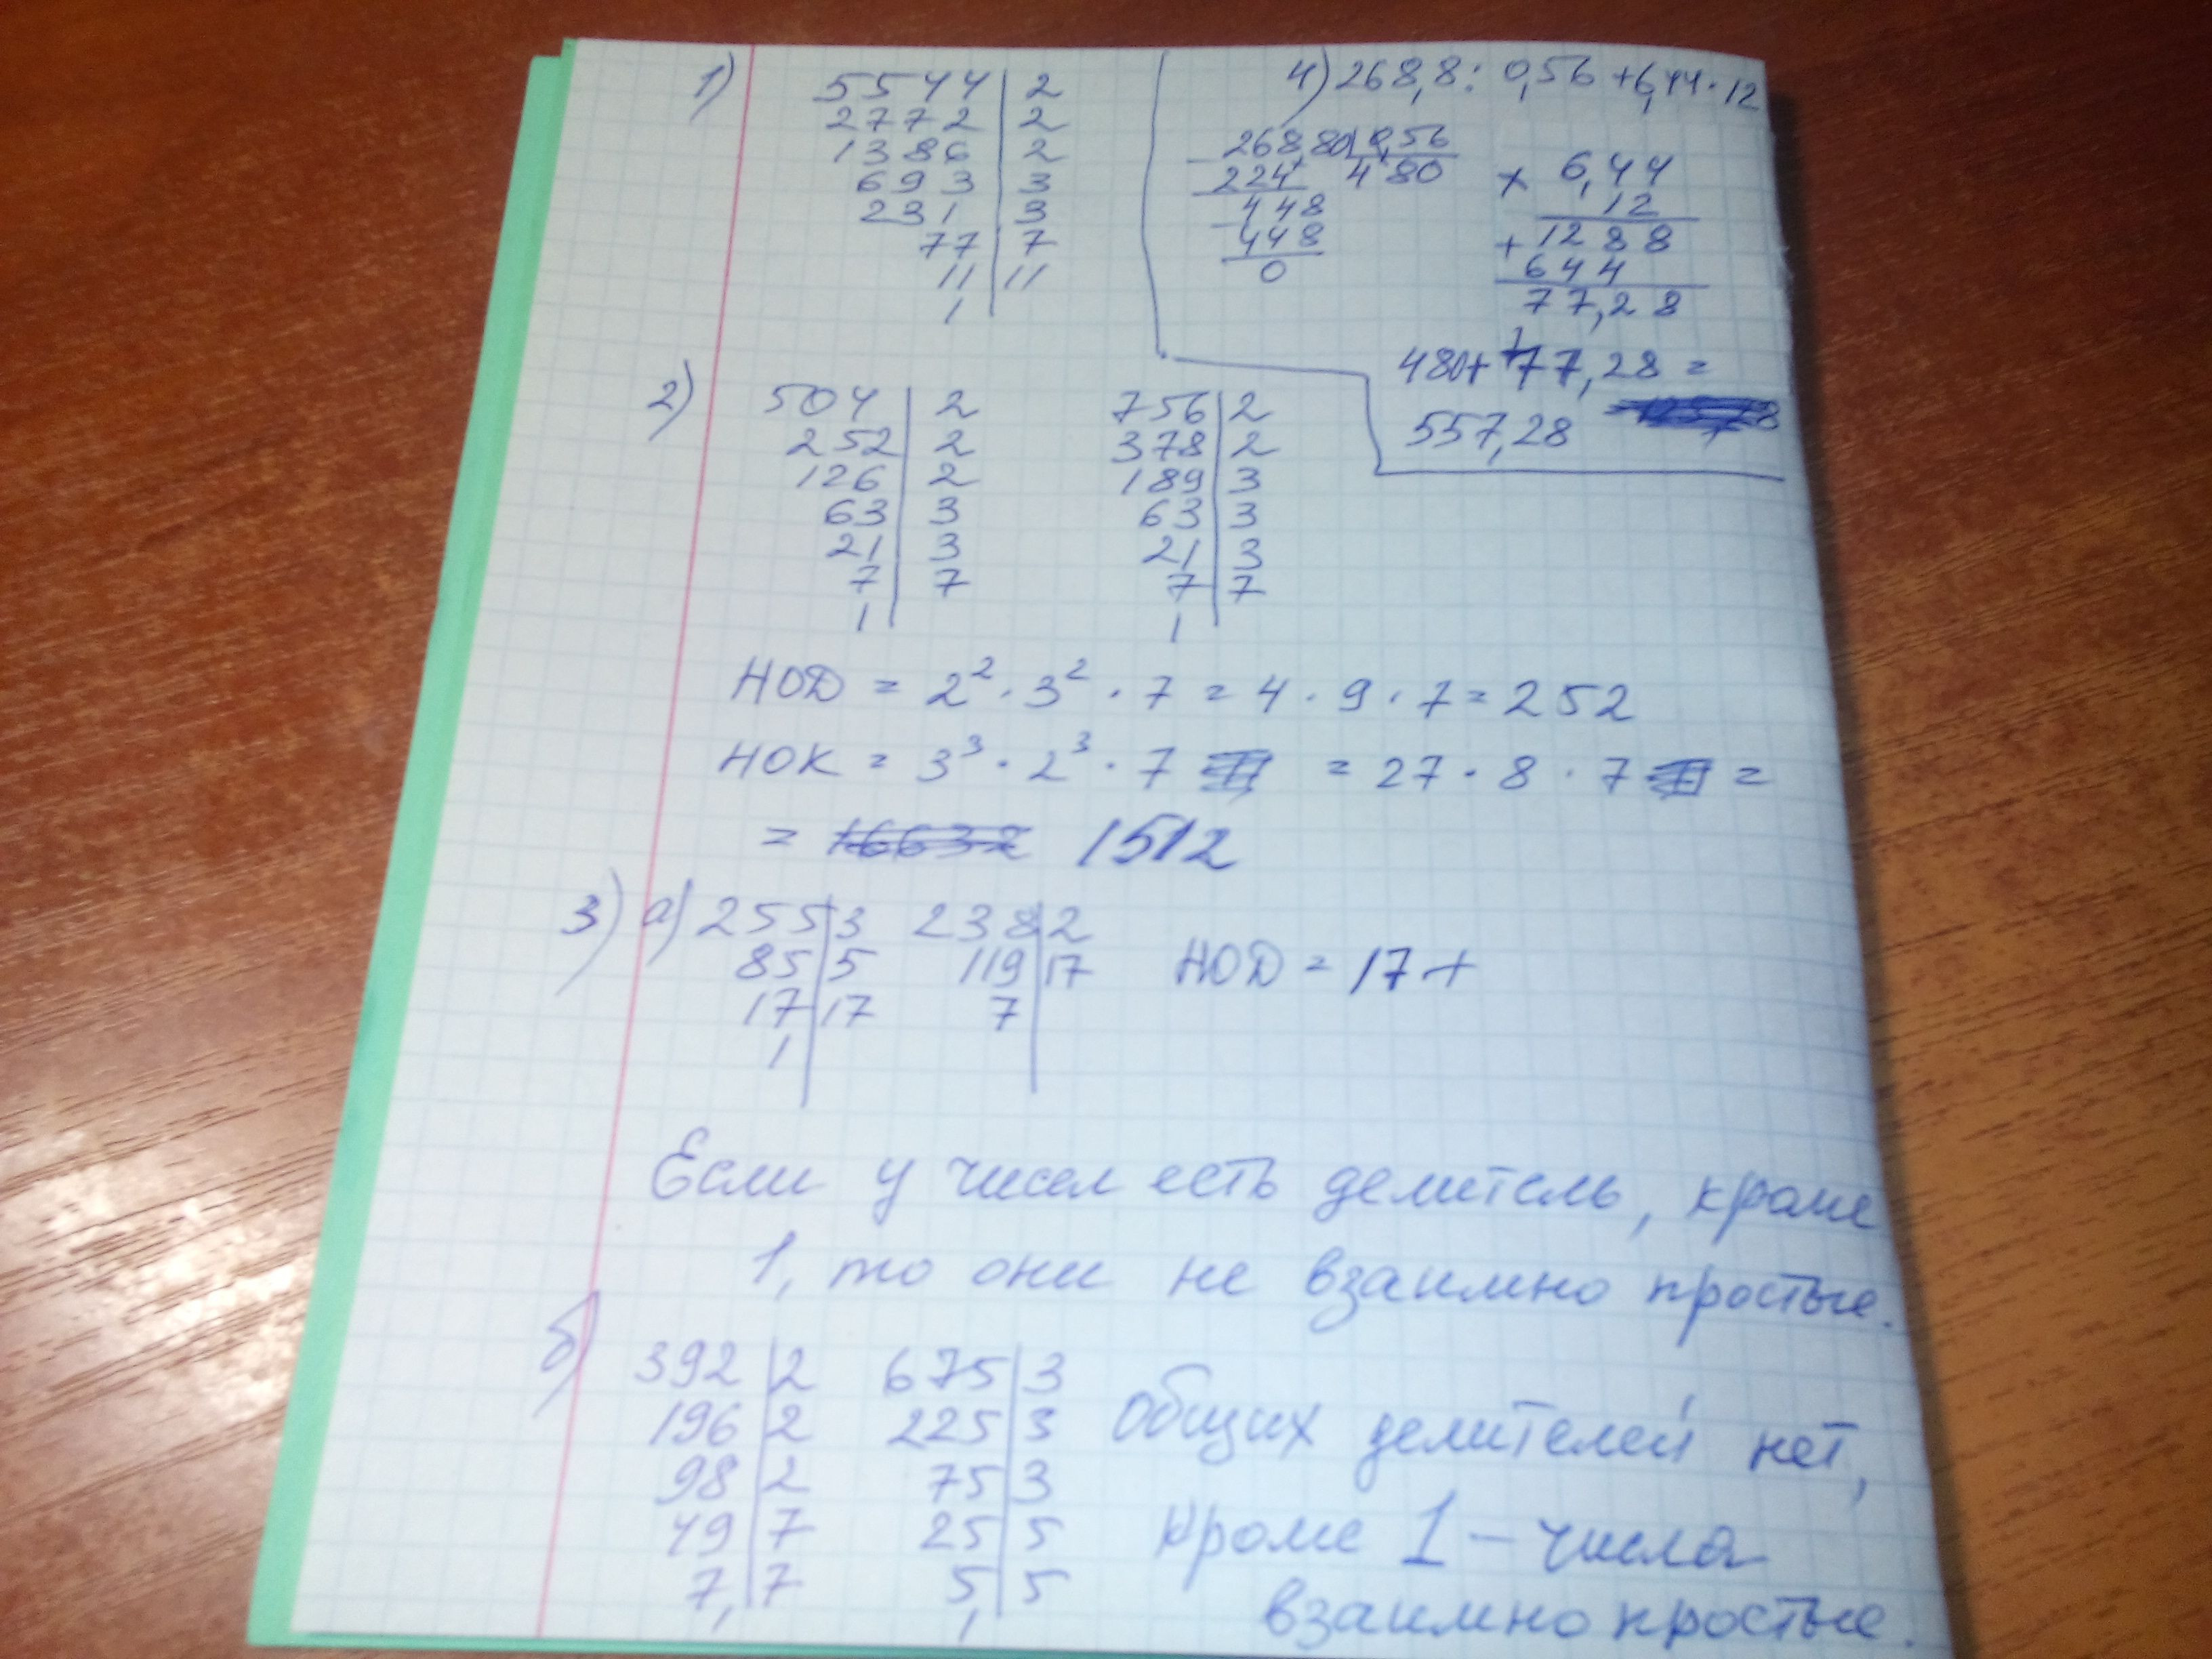 1)
5544 | 2
2772 | 2
1386 | 2
693 | 3
231 | 3
77 | 7
11 | 11
1
4) 268,8 : 0,56 + 6,44 · 12
268,80 | 0,56
- 224 480
448
- 448
0
× 6,44
12
+ 1288
644
77,28
480 + 77,28 =
557,28
2)
504 | 2
252 | 2
126 | 2
63 | 3
21 | 3
7 | 7
1
756 | 2
378 | 2
189 | 3
63 | 3
21 | 3
7 | 7
1
НОД = 2² · 3² · 7 = 4 · 9 · 7 = 252
НОК = 3³ · 2³ · 7 = 27 · 8 · 7 =
= 16632 1512
3) а) 255 | 3 238 | 2
85 | 5 119 | 17 НОД = 17 +
17 | 17 7
1
Если у чисел есть делитель, кроме
1, то они не взаимно простые.
б)
392 | 2 675 | 3
196 | 2 225 | 3
98 | 2 75 | 3
49 | 7 25 | 5
7 | 7 5 | 5
1 1
Общих делителей нет,
кроме 1 – числа
взаимно простые.